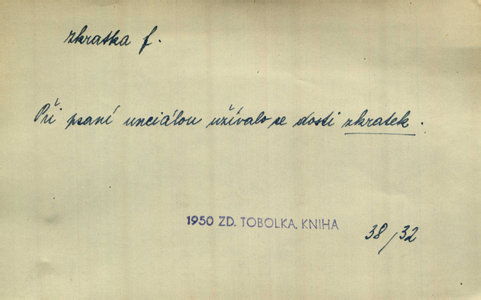 zkratka f.
Při psaní unciálou užívalo se dosti zkratek.
1950 ZD. TOBOLKA, KNIHA
38/32